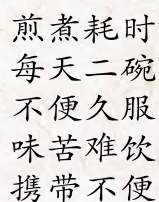 煎煮耗时
每天二碗
不便久服
味苦难饮
携带不便